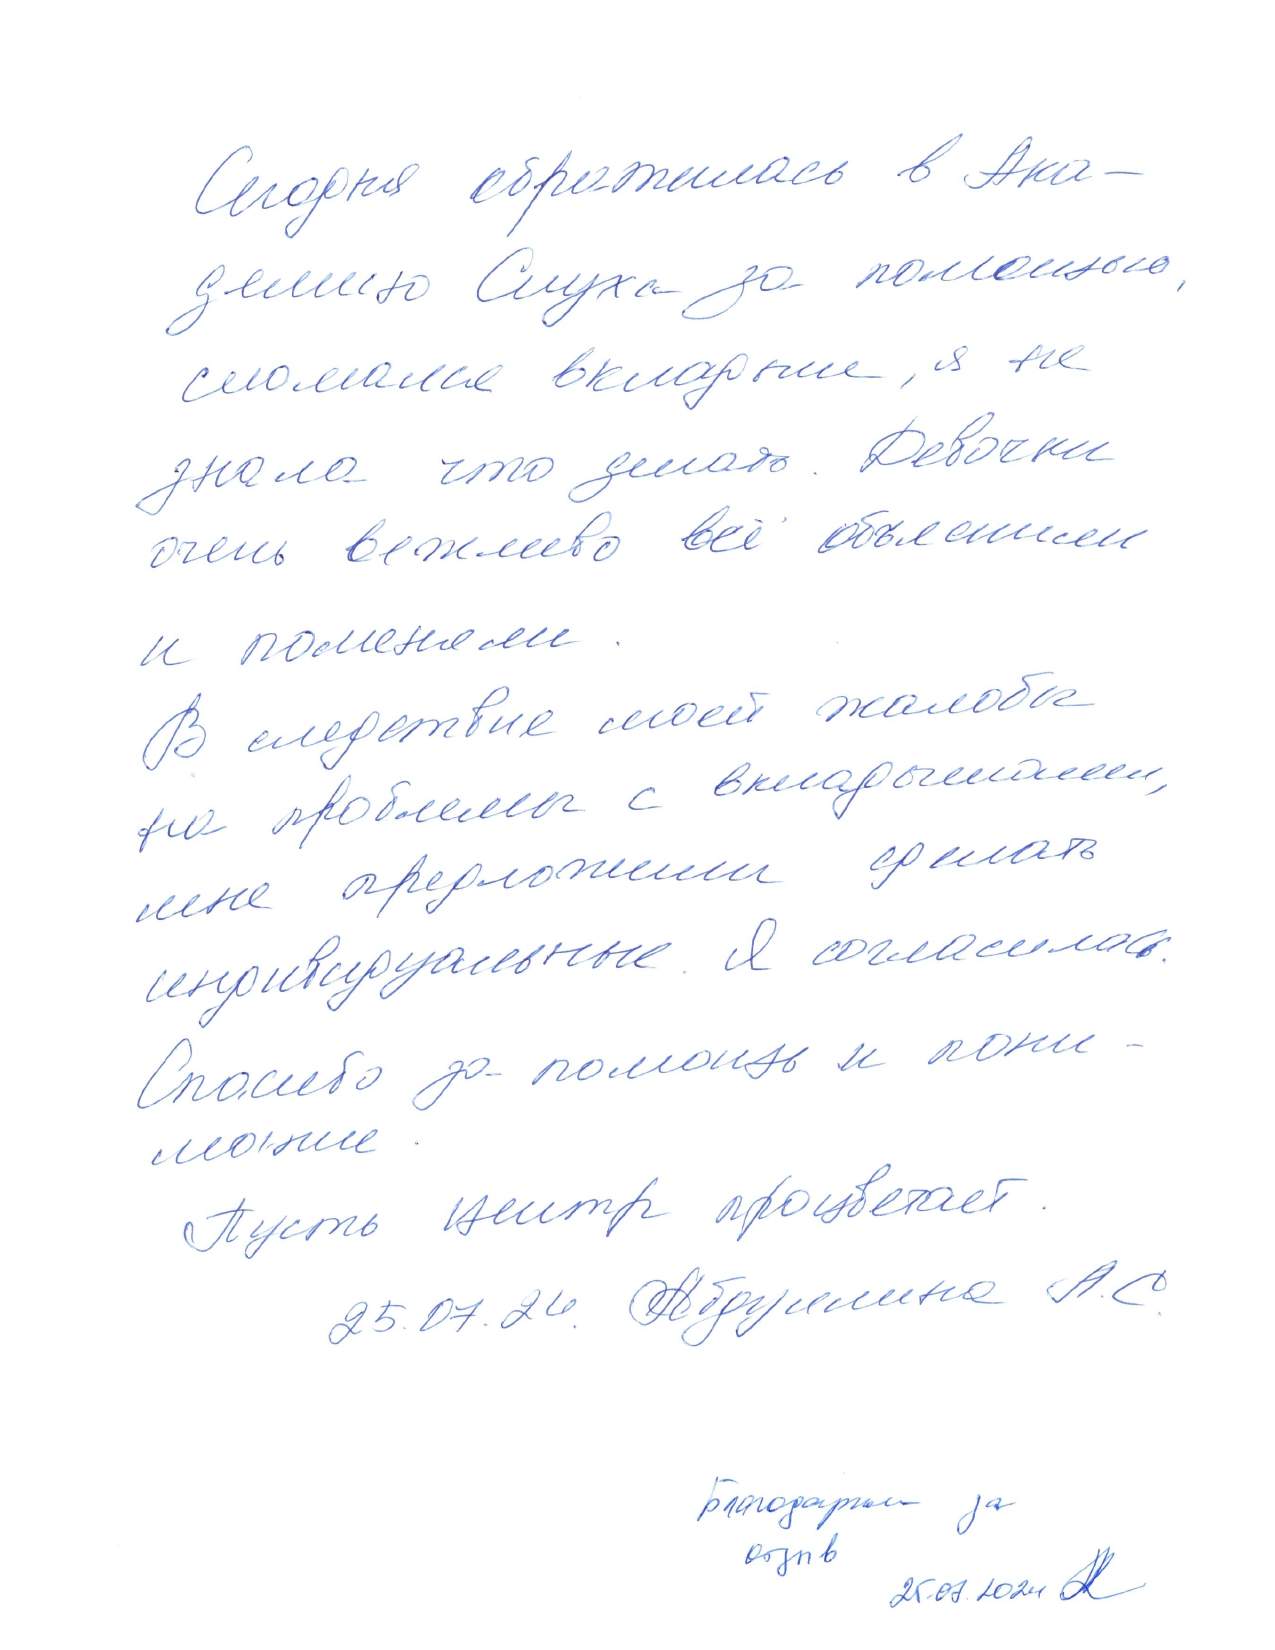 Сегодня обратилась в Ака-
демию Слуха за помощью,
сломался вкладыш, я не
знала что делать. Девочки
очень вежливо всё объяснили
и поменяли.
В следствие моей жалобы
на проблемы с вкладышами,
мне предложили сделать
индивидуальные. Я согласилась.
Спасибо за помощь и пони-
мание.
Пусть центр процветает.
25.07.24. Абдуллина А.С.
Благодарим за
отзыв
25.07.2024